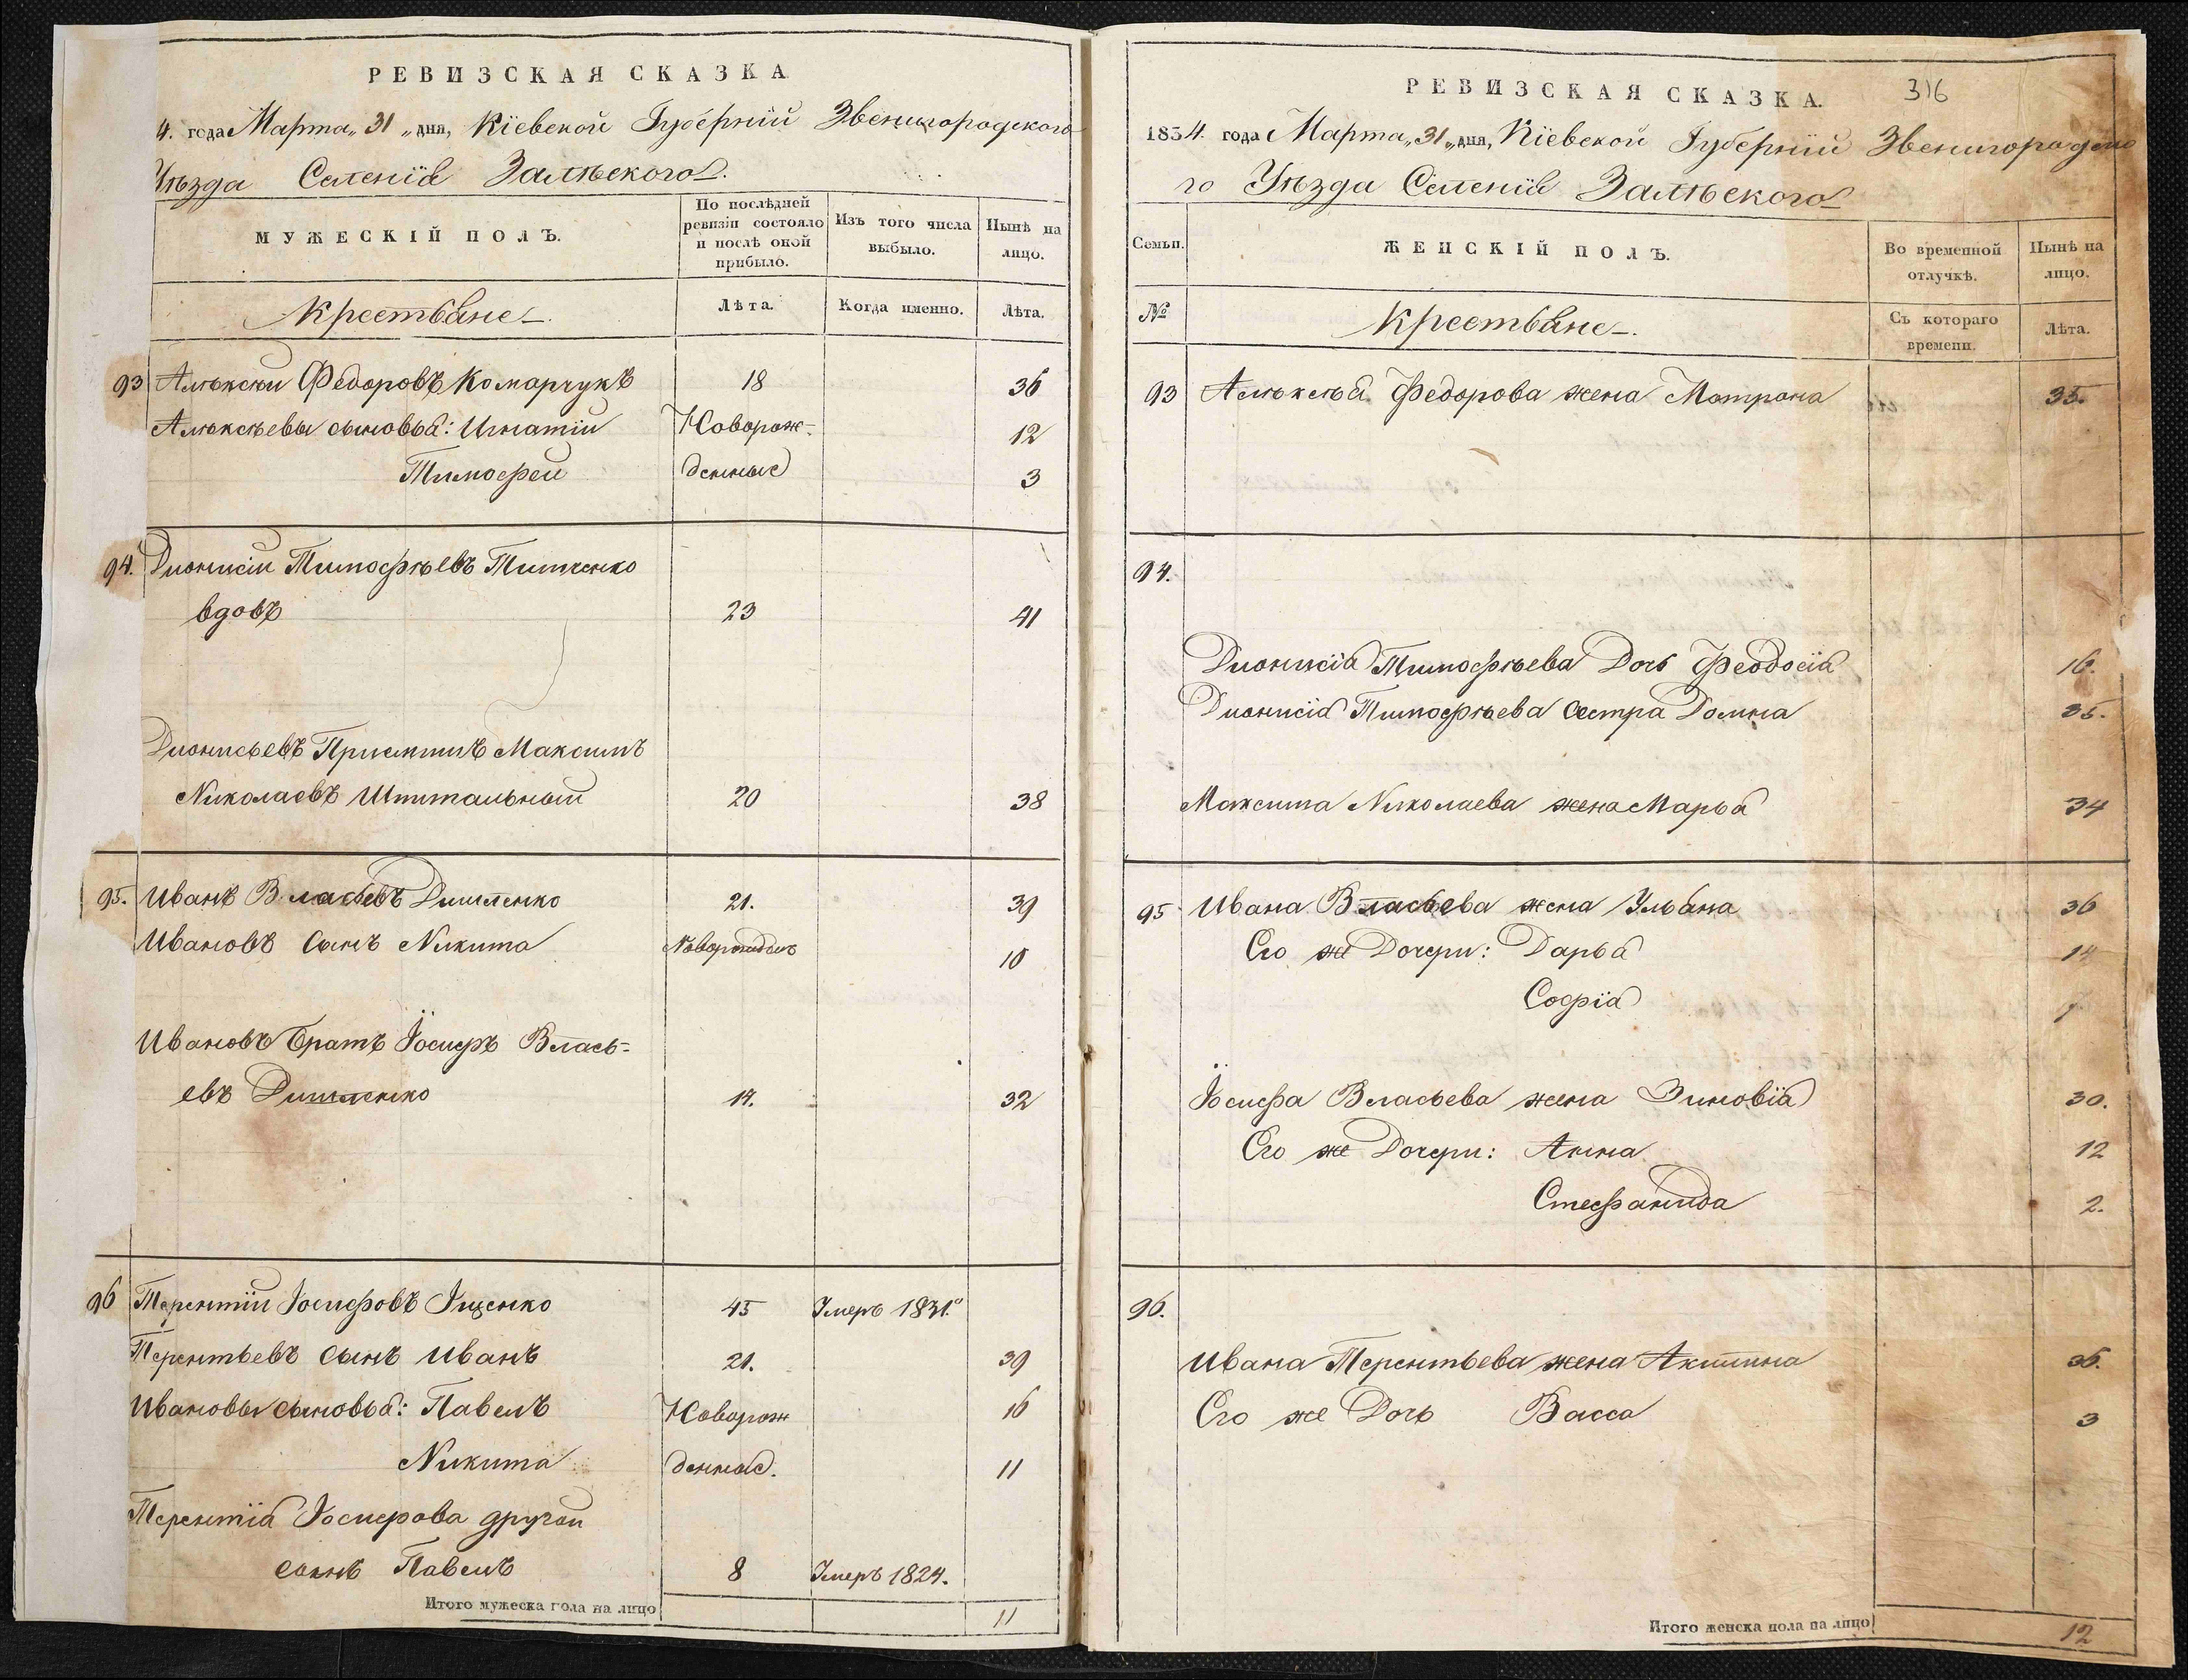 РЕВИЗСКАЯ СКАЗКА
4. года Марта „31„ дня, Кіевской Губерніи Звенигородскаго
Уѣзда Селенія Залѣскаго
МУЖЕСКІЙ ПОЛЪ.
По послѣдней ревизіи состояло и послѣ оной прибыло.
Изъ того числа выбыло.
Нынѣ на лицо.
Крестьяне
Лѣта.
Когда именно.
Лѣта.
93 Алѣксѣй Федоровъ Комарчукъ 18 36
Алѣксѣевы сыновья: Игнатій Новорож- 12
Тимофей денные 3
94. Дионисій Тимофѣевъ Тимченко
вдовъ 23 41
Дионисьевъ Приемышъ Максимъ
Николаевъ Шпитальный 20 38
95. Иванъ Власьевъ Дишленко 21. 39
Ивановъ Сынъ Никита 10
Ивановъ братъ Іосифъ Влась-
евъ Дишленко 14. 32
96 Терентій Іосифовъ Іщенко 45 Умеръ 1831.
Терентьевъ Сынъ Иванъ 21. 39
Ивановы сыновья: Павелъ Новорож 16
Никита денные. 11
Терентія Іосифова другой
сынъ Павелъ 8 Умеръ 1824.
Итого мужеска пола на лицо 11
РЕВИЗСКАЯ СКАЗКА. 316
1834. года Марта „31„ дня, Кіевской Губерніи Звенигородска
го Уѣзда Селенія Залѣскаго
Семьи.
ЖЕНСКІЙ ПОЛЪ.
Во временной отлучкѣ.
Нынѣ на лицо.
№
Крестьяне.
Съ котораго времени.
Лѣта.
93 Алѣксѣя Федорова жена Матрона 35.
94.
Дионисія Тимофѣева Дочь Феодосія 16.
Дионисія Тимофѣева Сестра Домна 35.
Максима Николаева жена Марья 34
95 Ивана Власьева жена Ульяна 36
Его же Дочери: Дарья 14
Софія
Іосифа Власьева жена Зиновія 30.
Его же Дочери: Анна 12
Стефанида 2.
96.
Ивана Терентьева жена Акилина 36.
Его же Дочь Васса 3
Итого женска пола на лицо 12